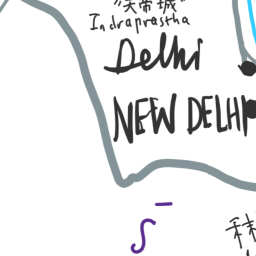 "天帝城"
Indraprastha
Delhi
NEW DELHI